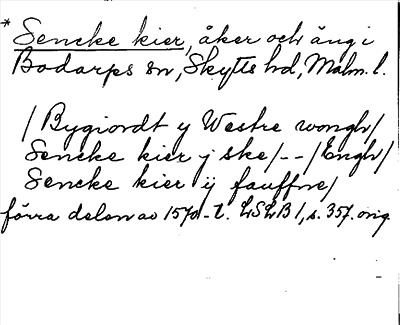 * Sencke kier, åker och äng i
Bodarps sn, Skytts hd, Malm. l.
/Bygiordt y Westre wongh/
Sencke kier j ske/--/Engh/
Sencke kier ij fauffne/
förra delen av 1570-t. LSLB 1, s. 357. orig.